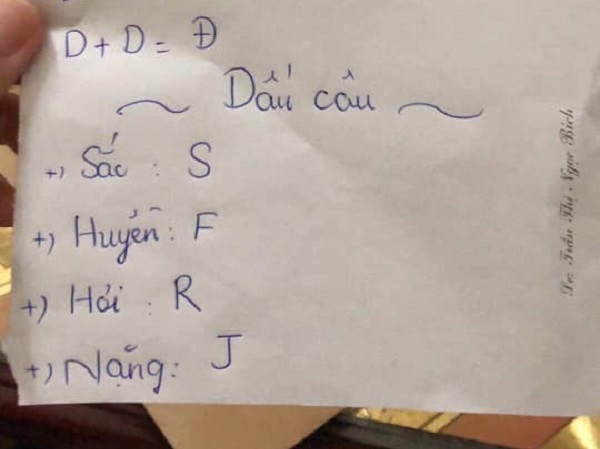 D + D = Đ
~ Dấu câu ~
+) Sắc : S
+) Huyền : F
+) Hỏi : R
+) Nặng : J
Dr. Trần Thị Ngọc Bích